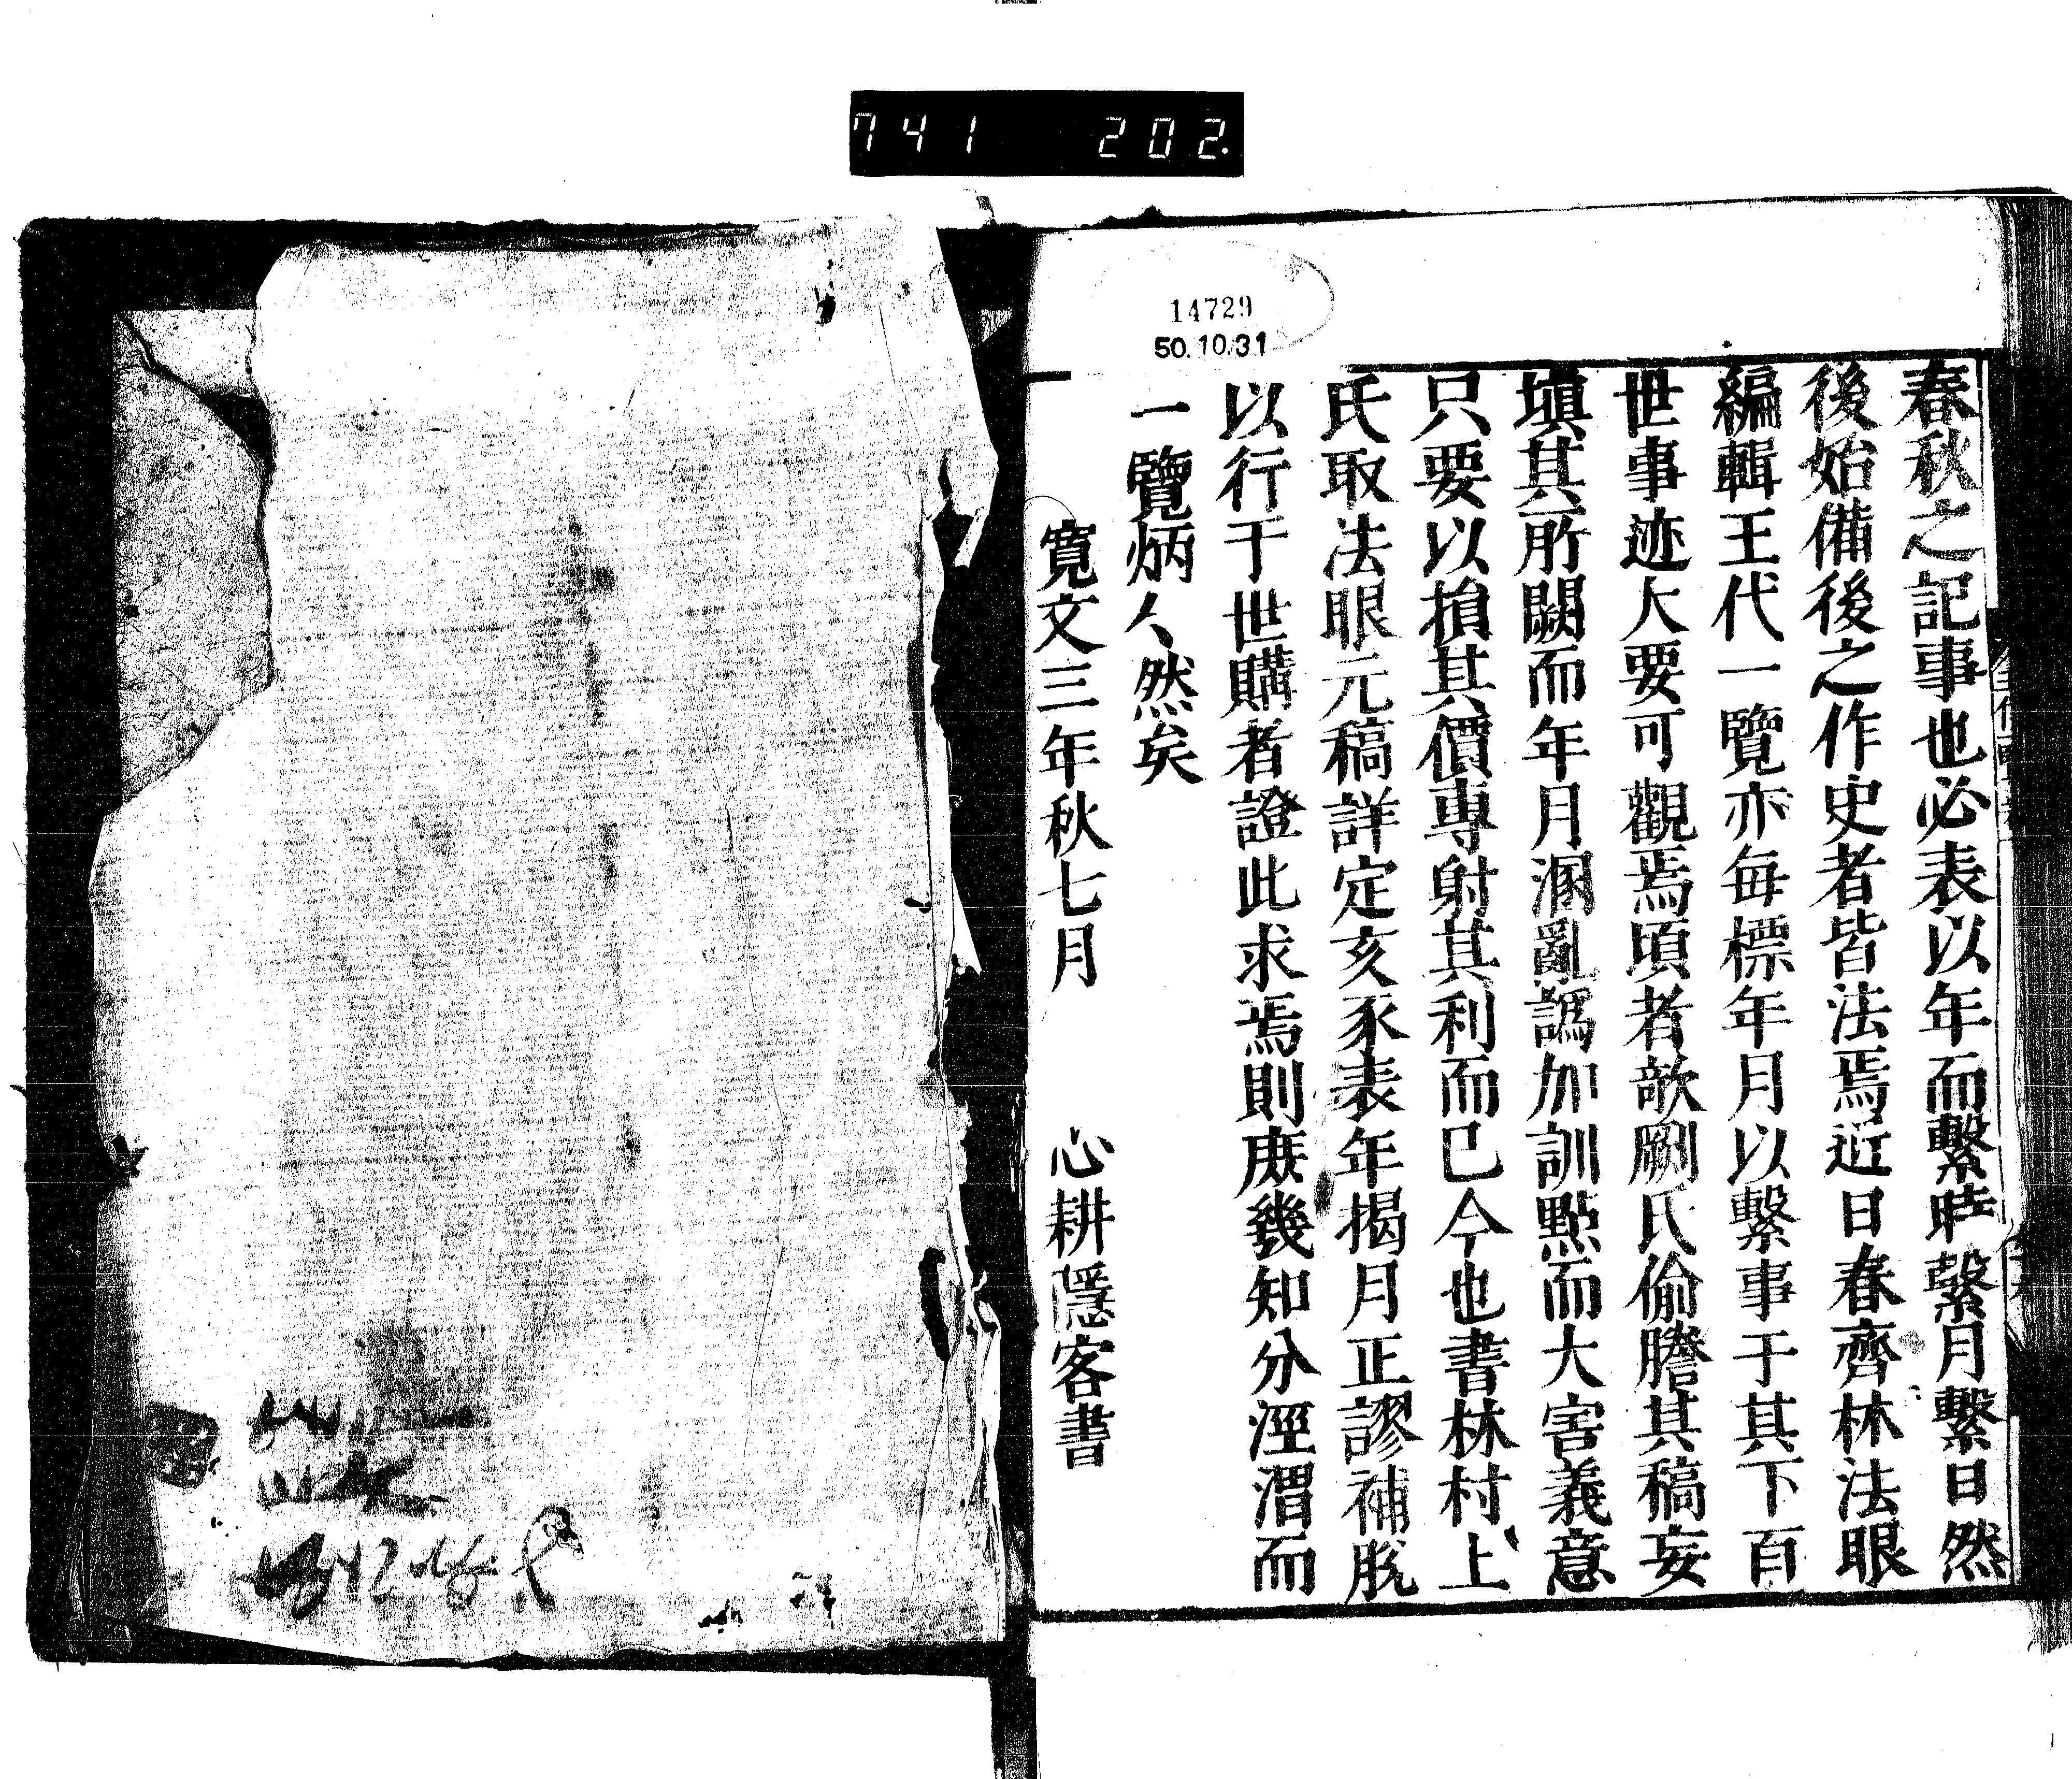 741 202.
14729
50.10.31
春秋之記事也必表以年而繫時繫月繫日然
後始備後之作史者皆法焉近日春齊林法眼
編輯王代一覽亦每標年月以繫事于其下百
世事迹大要可觀焉頃者歆劂氏偷謄其稿妄
塡其所闕而年月溷亂譌加訓點而大害義意
只要以損其價專射其利而已今也書林村上
氏取法眼元稿詳定亥豕表年揭月正謬補脫
以行于世購者證此求焉則庶幾知分涇渭而
一覽炳人然矣
寬文三年秋七月 心耕隱客書